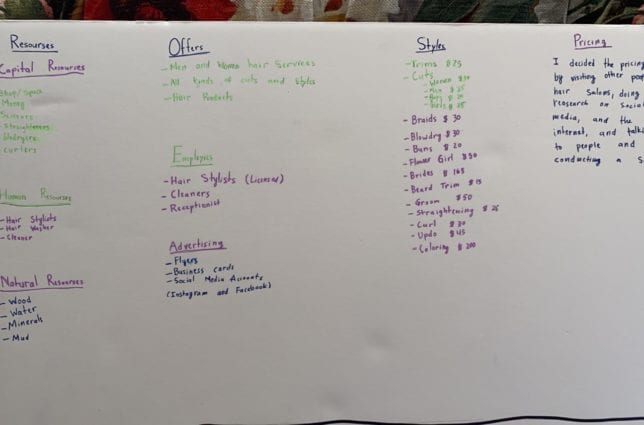 Resourses
Capital Resources
Shop/space
Money
Scissors
- Straighteners
Curlers
Human Resourses
- Hair Stylists
- Hair Washer
- Cleaner
Natural Resourses
- Wood
- Water
- Minerals
- Mud
Offers
- Men and Women hair Services
- All kinds of cuts and styles
- Hair Products
Employees
- Hair Stylists (Licensed)
- Cleaners
- Receptionist
Advertising
- Flyers
- Business cards
- Social Media Accounts
(Instagram and Facebook)
Styles
- Trims $25
- Cuts
- Women
- Men
- Braids $30
- Blowdry $30
- Buns $20
- Flower Girl $50
- Brides $165
- Beard Trim $15
- Groom $50
- Straightening $25
- Curl $30
- Updo $45
- Coloring $200
Pricing
I decided the pricing
by visiting other
hair Salons, doing
research on
media, and the
internet, and
to people and
conducting a